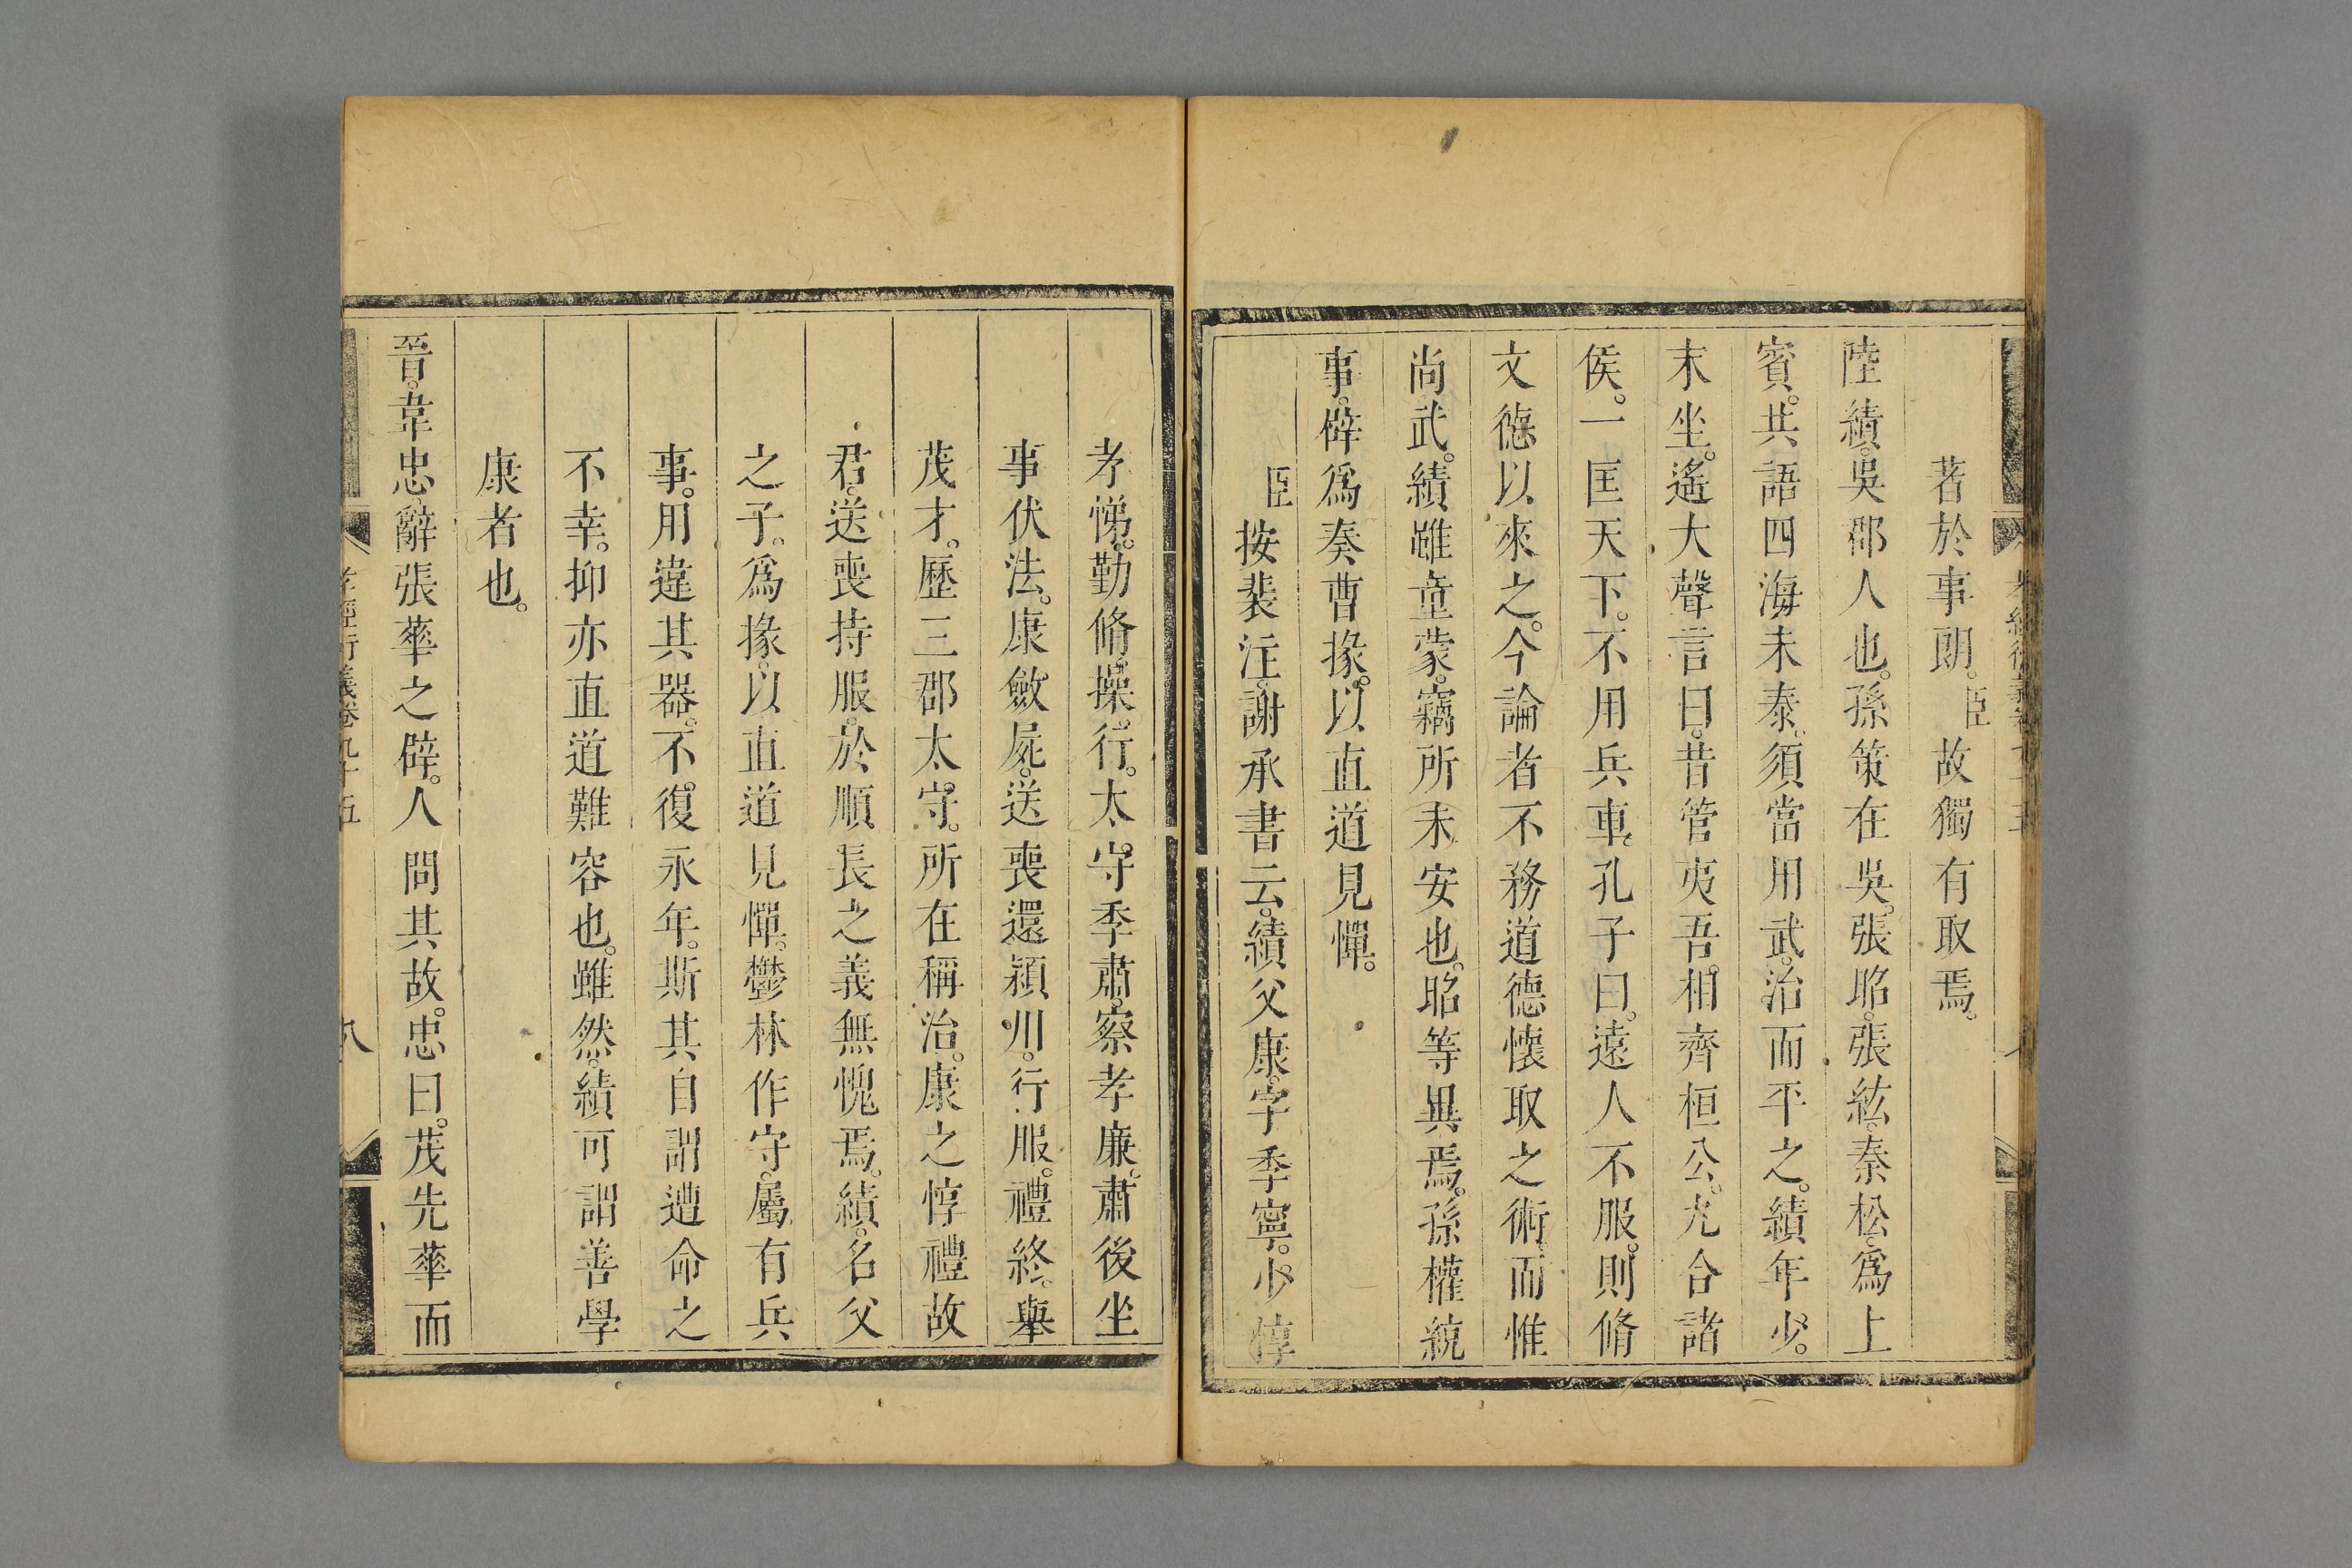 著於事朗。臣故獨有取焉。
陸績。吳郡人也。孫策在吳。張昭。張紘。秦松。爲上
賓。共語四海未泰。須當用武。治而平之。績年少。
末坐。遙大聲言曰。昔管夷吾。相齊桓公。九合諸
侯。一匡天下。不用兵車。孔子曰。遠人不服。則脩
文德以來之。今論者不務道德懷取之術。而惟
尚武。績雖童蒙。竊所未安也。昭等異焉。孫權統
事。辟爲奏曹掾。以直道見憚。
臣按裴注。謝承書云。績父康。字季寧。少惇
孝悌。勤脩。操。行。太。守。季肅。察孝廉。肅後坐
事伏法。康斂屍。送喪還潁川。行服。禮終。舉
茂才。歷三郡太。守。所在稱治。康之惇禮故
君。送喪持服。於順長之義無愧焉。績。名父
之子。爲掾。以直道見憚。鬱林作守。屬有兵
事。用違其器。不。復永年。斯其自謂遭命之
不幸。抑亦直道難容也。雖然。績可謂善學
康者也。
孝經衍義卷九十五
八
晉。韋忠。辭張華之辟。人問其故。忠曰。茂先華而